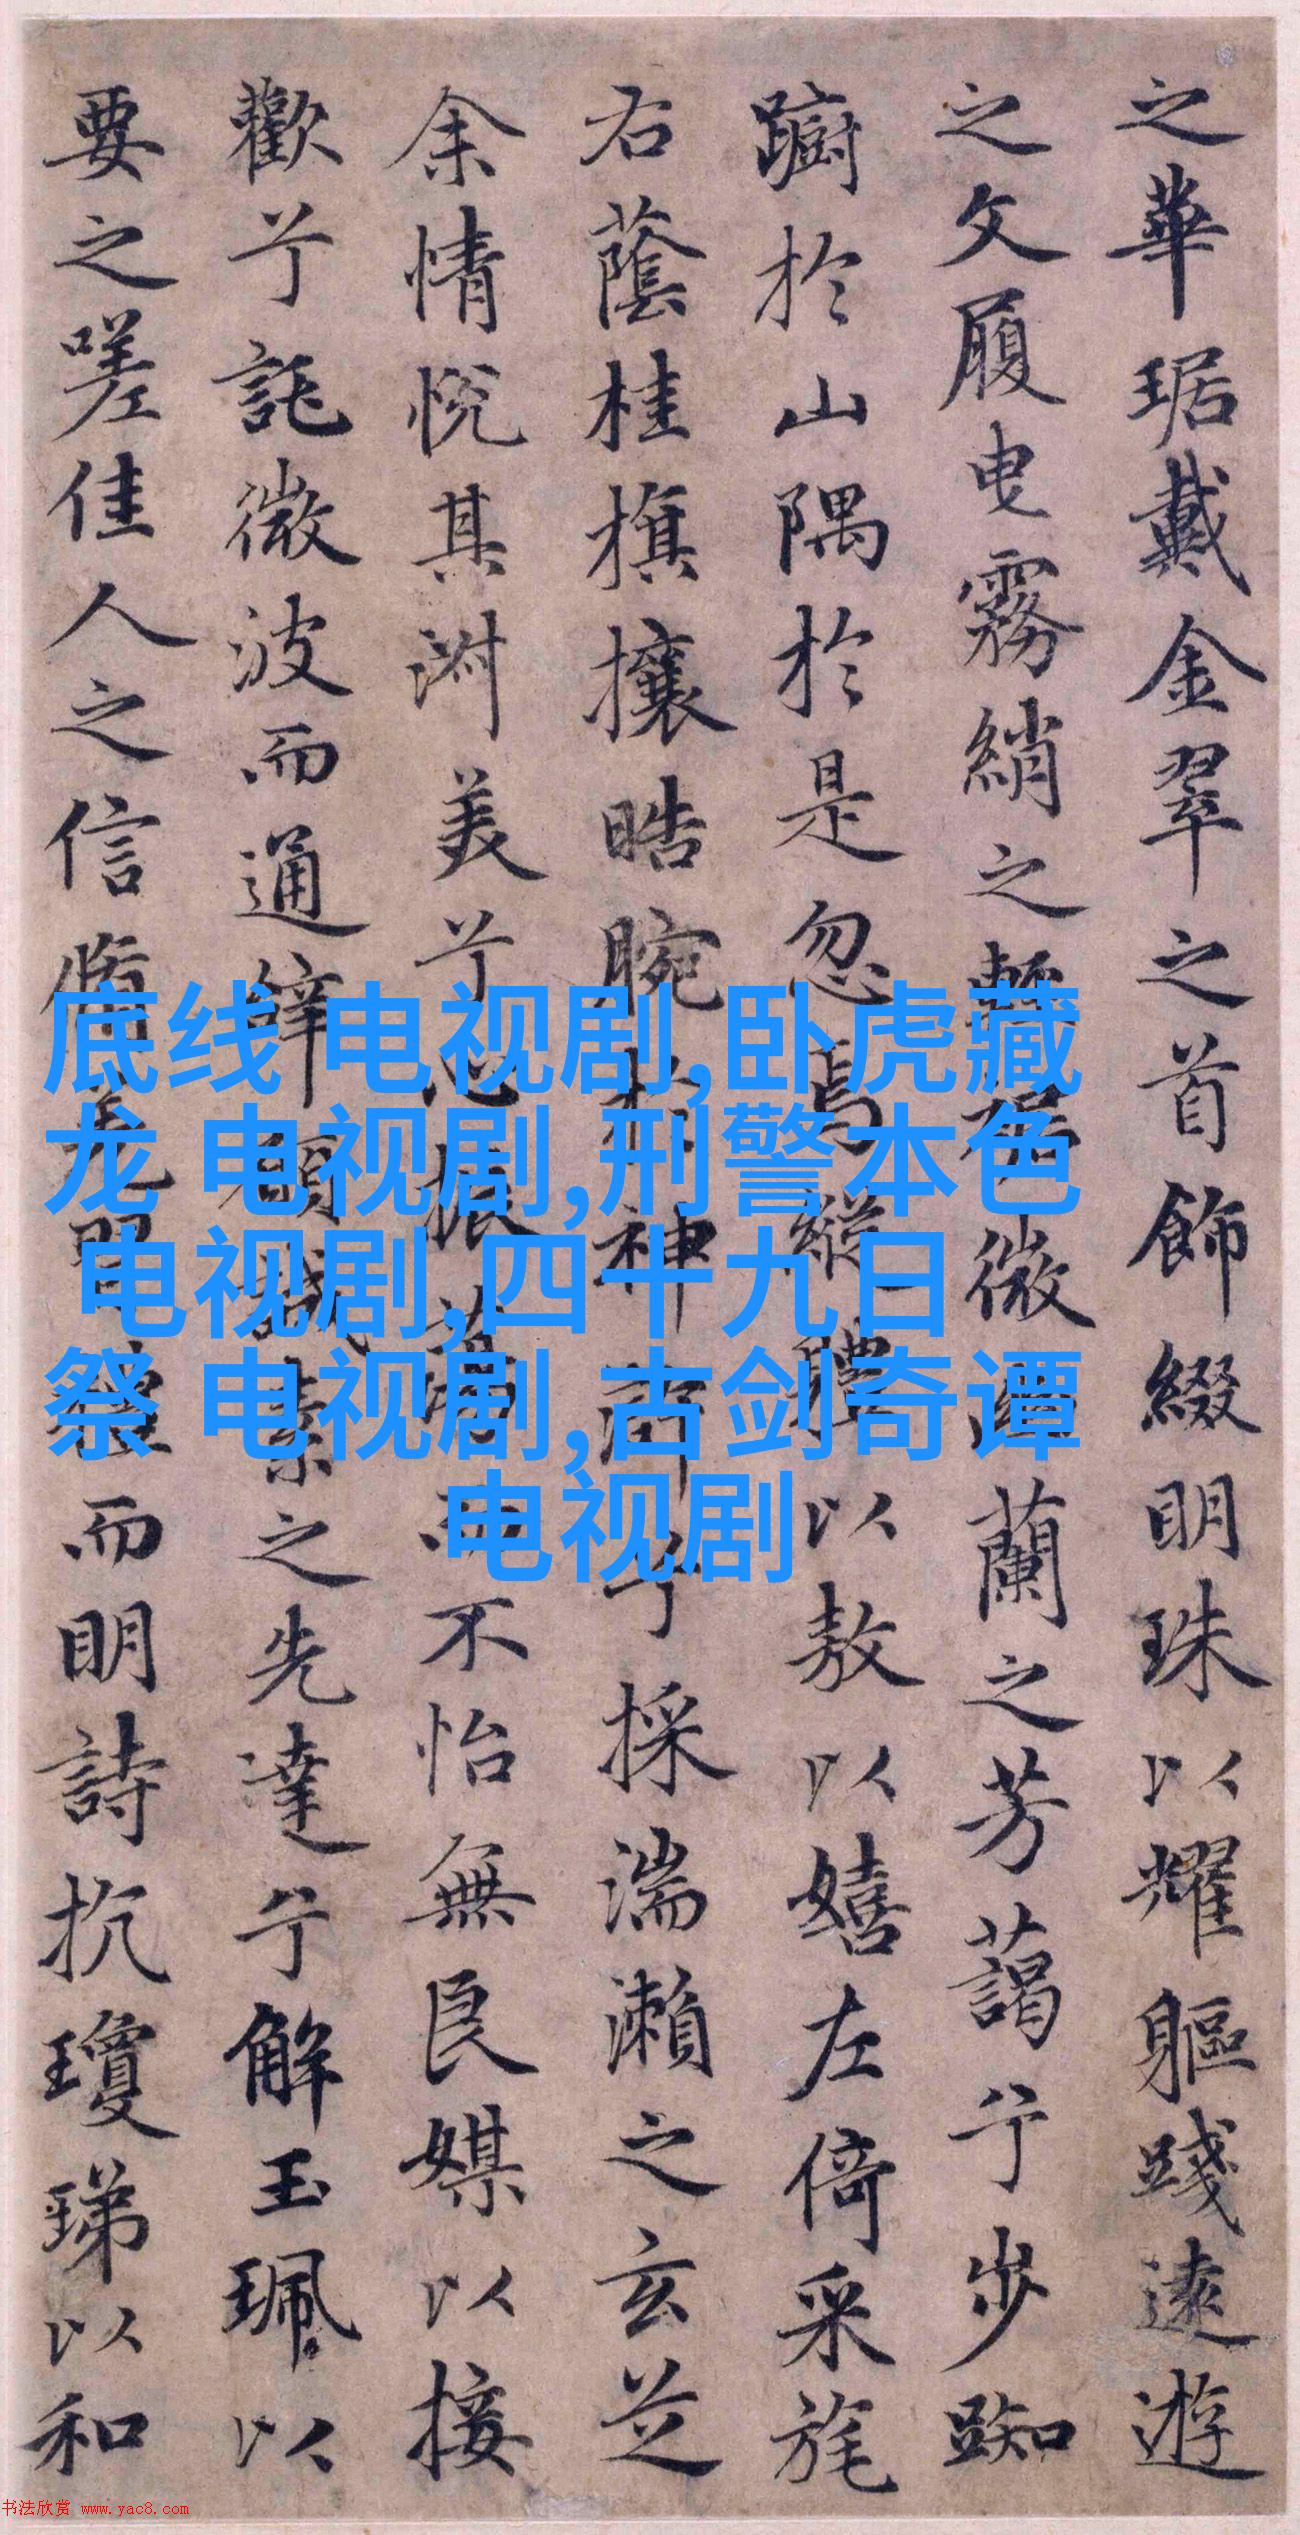 之華琚戴金翠之首飾綴明珠以耀軀踐遠遊
之文履曳霧綃之輕裾微幽蘭之芳藹兮步踟
躕於山隅於是忽焉縱體以敖以嬉左倚采旄
右蔭桂旗攘晧腕於神滸兮採湍瀨之玄芝
余情悅其淑美兮心振蕩而不怡無良媒以接
歡兮託微波而通辭願誠素之先達兮解玉珮以
要之嗟佳人之信脩羌習禮而明詩抗瓊珶以和
底线 电视剧,卧虎藏
龙 电视剧,刑警本色
电视剧,四十九日
祭 电视剧,古剑奇谭
电视剧
书法欣赏 www.yac8.com